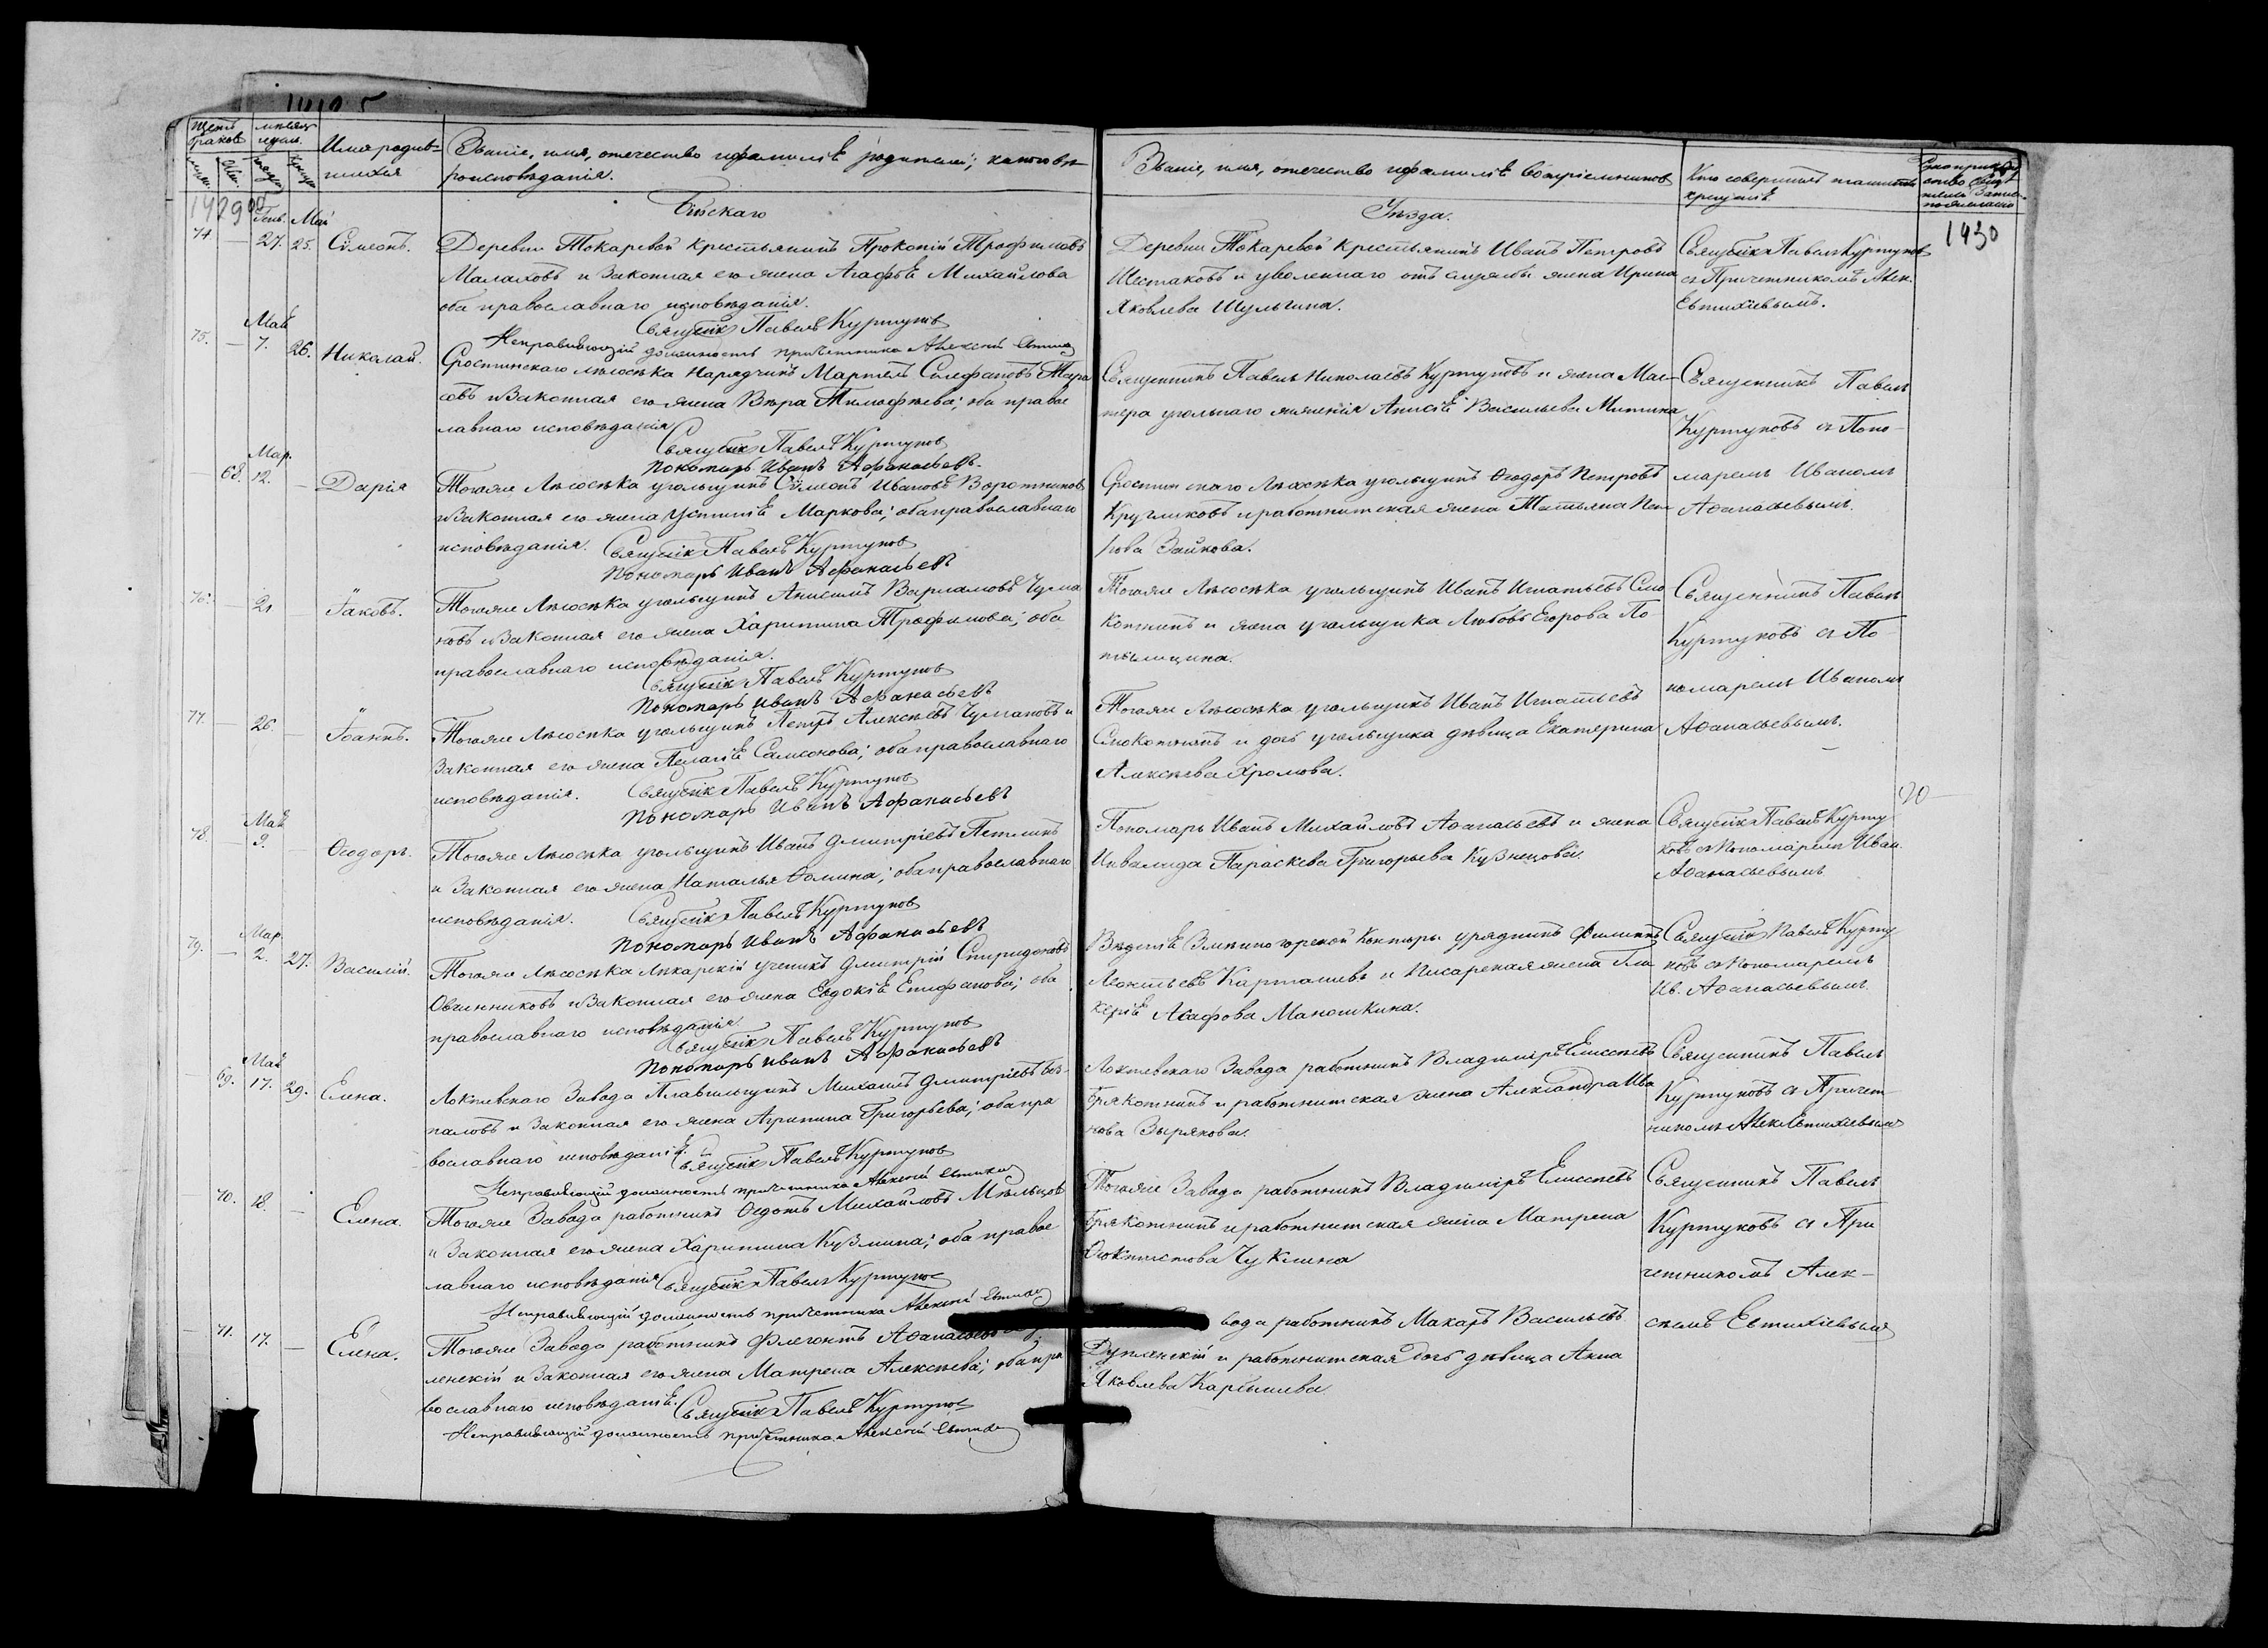 Имя родив-
шихся
Званіе, имя, отечество и фамилія родителей; какого вѣ-
роисповѣданія.
Званіе, имя, отечество и фамилія воспріемниковъ
Кто совершалъ таинство
крещенія
1429
1430
Бійскаго
Уѣзда.
74. — 27. Май 25. Сѵмеонъ.
Деревни Токаревой крестьянинъ Прокопій Трофимовъ
Малаховъ и законная его жена Агафія Михайлова
оба православнаго исповѣданія.
Священникъ Павелъ Куртуков
Исправляющій должность причетника Алексѣй
Деревни Токаревой крестьянинъ Иванъ Петровъ
Шестаковъ и уволеннаго отъ службы жена Ирина
Яковлева Шульгина.
Священникъ Павелъ Куртуков
съ Причетникомъ Алек.
Евтихіевымъ.
75. — Май 7. 26. Николай.
Сростинскаго лѣсосѣка Нарядчикъ Мартемъ Стефановъ Тара
совъ и законная его жена Вѣра Тимофѣева; оба правос
лавнаго исповѣданія
Священникъ Павелъ Куртуков
Пономарь Иванъ Афанасьевъ.
Священникъ Павелъ Николаевъ Куртуковъ и жена Мас-
тера угольнаго жженія Анисія Васильева Митина
Священникъ Павелъ
Куртуковъ съ Поно-
маремъ Иваномъ
Аѳанасьевымъ.
— 68. Мар. 12. — Дарія
Тогоже лѣсосѣка угольщикъ Сѵмеонъ Ивановъ Воротниковъ
и законная его жена Устинія Маркова; оба православнаго
исповѣданія. Священникъ Павелъ Куртуков
Пономарь Иванъ Афанасьевъ
Сростинскаго лѣсосѣка угольщикъ Ѳеодоръ Петровъ
Кругликовъ и работнитская жена Татьяна Пет
рова Зайкова.
76. — 21 — Іаковъ.
Тогоже лѣсосѣка угольщикъ Анисимъ Варламовъ Чума
ковъ и законная его жена Харитина Трофимова; оба
православнаго исповѣданія.
Священникъ Павелъ Куртуков
Пономарь Иванъ Афанасьевъ
Тогоже лѣсосѣка угольщикъ Иванъ Игнатьевъ Смо
котнинъ и жена угольщика Любовь Егорова По
Священникъ Павелъ
Куртуковъ съ По
номаремъ Иваномъ
Аѳанасьевымъ.
77. — 26. — Іоаннъ.
Тогоже лѣсосѣка угольщикъ Петръ Алексѣевъ Чумаковъ и
законная его жена Пелагія Самсонова; оба православнаго
исповѣданія. Священникъ Павелъ Куртуков
Пономарь Иванъ Афанасьевъ
Тогоже лѣсосѣка угольщикъ Иванъ Игнатьевъ
Смокотнинъ и дочь угольщика дѣвица Екатерина
Алексѣева Хромова.
78. — Май 9. — Ѳеодоръ.
Тогоже лѣсосѣка угольщикъ Иванъ Дмитріевъ Петлинъ
и законная его жена Наталья Ѳомина; оба православнаго
исповѣданія. Священникъ Павелъ Куртуков
Пономарь Иванъ Афанасьевъ
Пономарь Иванъ Михайловъ Аѳанасьевъ и жена
Инвалида Параскева Григорьева Кузнецова.
Священникъ Павелъ Курту
ковъ съ Пономаремъ Иван.
Аѳанасьевымъ
79. — Мар. 2. 27. Василій.
Тогоже лѣсосѣка лѣкарскій ученикъ Дмитрій Спиридоновъ
Овчинниковъ и законная его жена Евдокія Епифанова; оба
православнаго исповѣданія.
Священникъ Павелъ Куртуков
Пономарь Иванъ Афанасьевъ
Вѣденія Змѣиногорской Конторы урядникъ Филиппъ
Леонтьевъ Карташевъ и писарская жена Гли
керія Асафова Маношкина.
Священникъ Павелъ Курту
ковъ съ Пономаремъ
Ив. Аѳанасьевымъ.
— 69. Май 17. 29. Елена.
Локтевскаго Завода Плавильщикъ Михаилъ Дмитріевъ Без-
паловъ и законная его жена Агрипина Григорьева; оба пра
вославнаго исповѣданія. Священникъ Павелъ Куртуков
Исправляющій должность причетника Алексѣй
Локтевскаго Завода работникъ Владиміръ Елисеевъ
Брякотнинъ и работнитская жена Александра Ива
нова Зырянова.
Священникъ Павелъ
Куртуковъ съ Причет-
никомъ Алек. Евтихіевымъ
70. 18. — Елена.
Тогоже Завода работникъ Ѳедотъ Михайловъ Мѣльцовъ
и законная его жена Харитина Кузмина; оба правос
лавнаго исповѣданія Священникъ Павелъ Куртуков
Исправляющій должность причетника Алексѣй
Тогоже Завода работникъ Владиміръ Елисеевъ
Брякотнинъ и работнитская жена Матрена
Ѳеоктистова Чуклина
Священникъ Павелъ
Куртуковъ съ При
четникомъ Алек-
сѣемъ Евтихіевымъ
— 71. 17. — Елена.
Тогоже Завода работникъ Флегонтъ Аѳанасьевъ
ленскій и законная его жена Матрена Алексѣева; оба пра
вославнаго исповѣданія. Священникъ Павелъ Куртуков
Исправляющій должность причетника Алексѣй
вода работникъ Макаръ Васильевъ
и работнитская дочь дѣвица Анна
Яковлева Карбышева